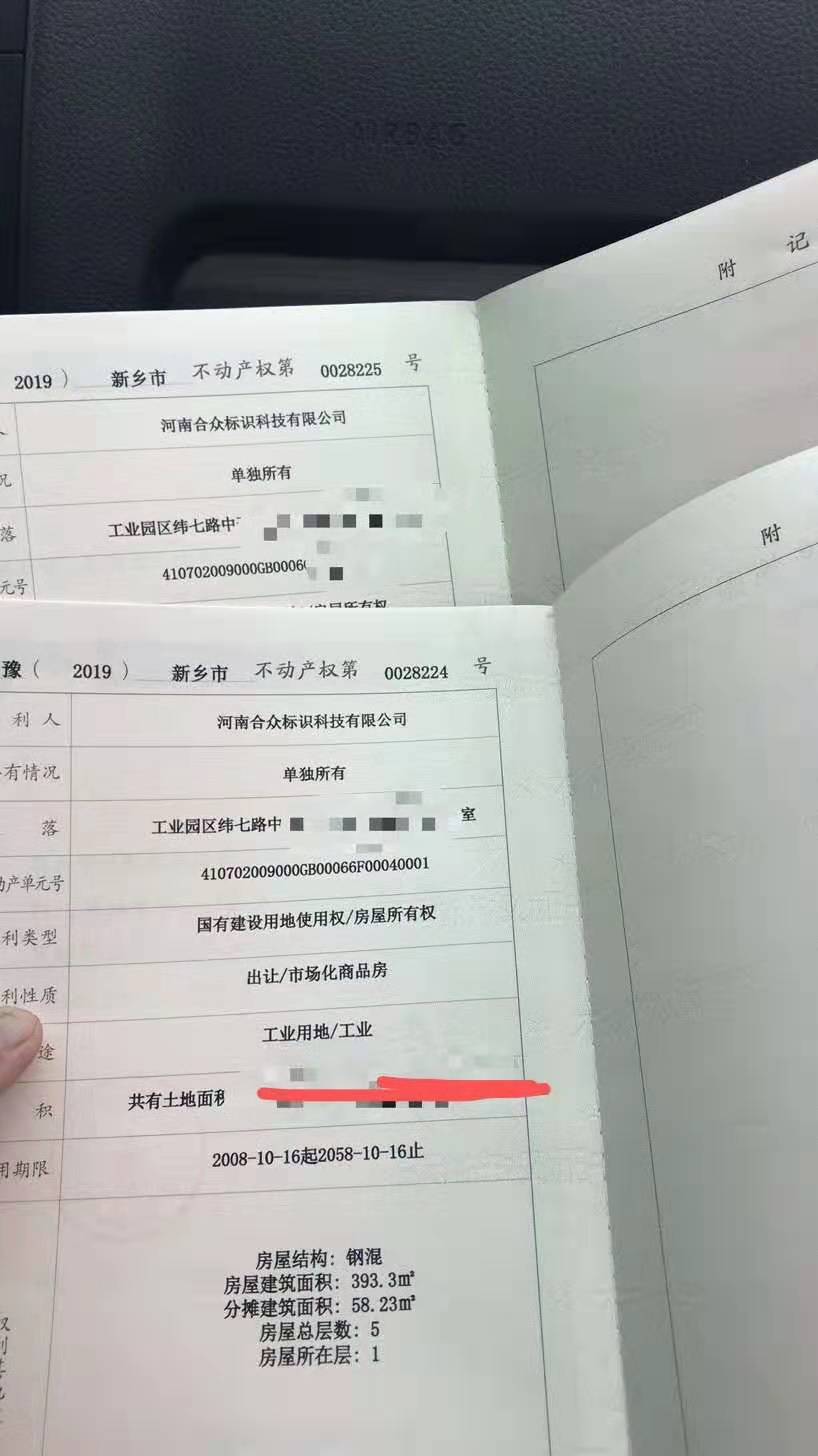 AIRBAG
附 记
2019 ） 新乡市 不动产权第 0028225 号
人 河南合众标识科技有限公司
况 单独所有
落 工业园区纬七路中
元号 410702009000GB0006
/房屋所有权
附
豫（ 2019 ） 新乡市 不动产权第 0028224 号
利 人 河南合众标识科技有限公司
有情况 单独所有
落 工业园区纬七路中 室
产单元号 410702009000GB00066F00040001
利类型 国有建设用地使用权/房屋所有权
利性质 出让/市场化商品房
途 工业用地/工业
积 共有土地面积
用期限 2008-10-16起2058-10-16止
房屋结构: 钢混
房屋建筑面积: 393.3㎡
分摊建筑面积: 58.23㎡
房屋总层数: 5
房屋所在层: 1
权
利
其